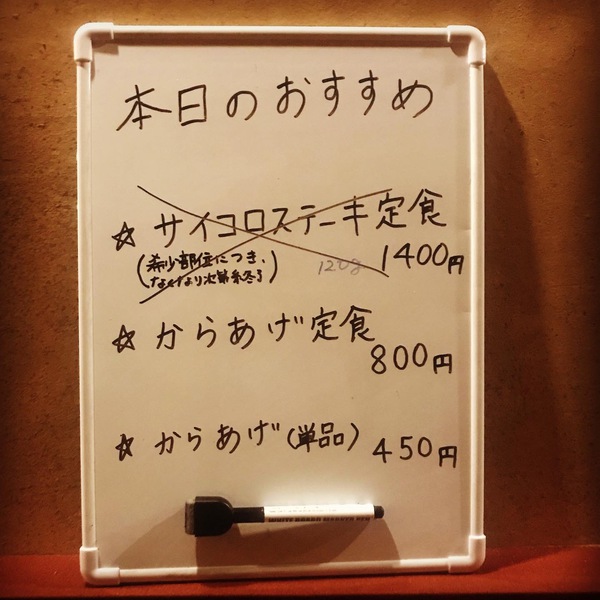 本日のおすすめ
☆ サイコロステーキ定食
(希少部位につき、
なくなり次第終了)
120g 1400円
☆ からあげ定食
800円
☆ からあげ(単品) 450円